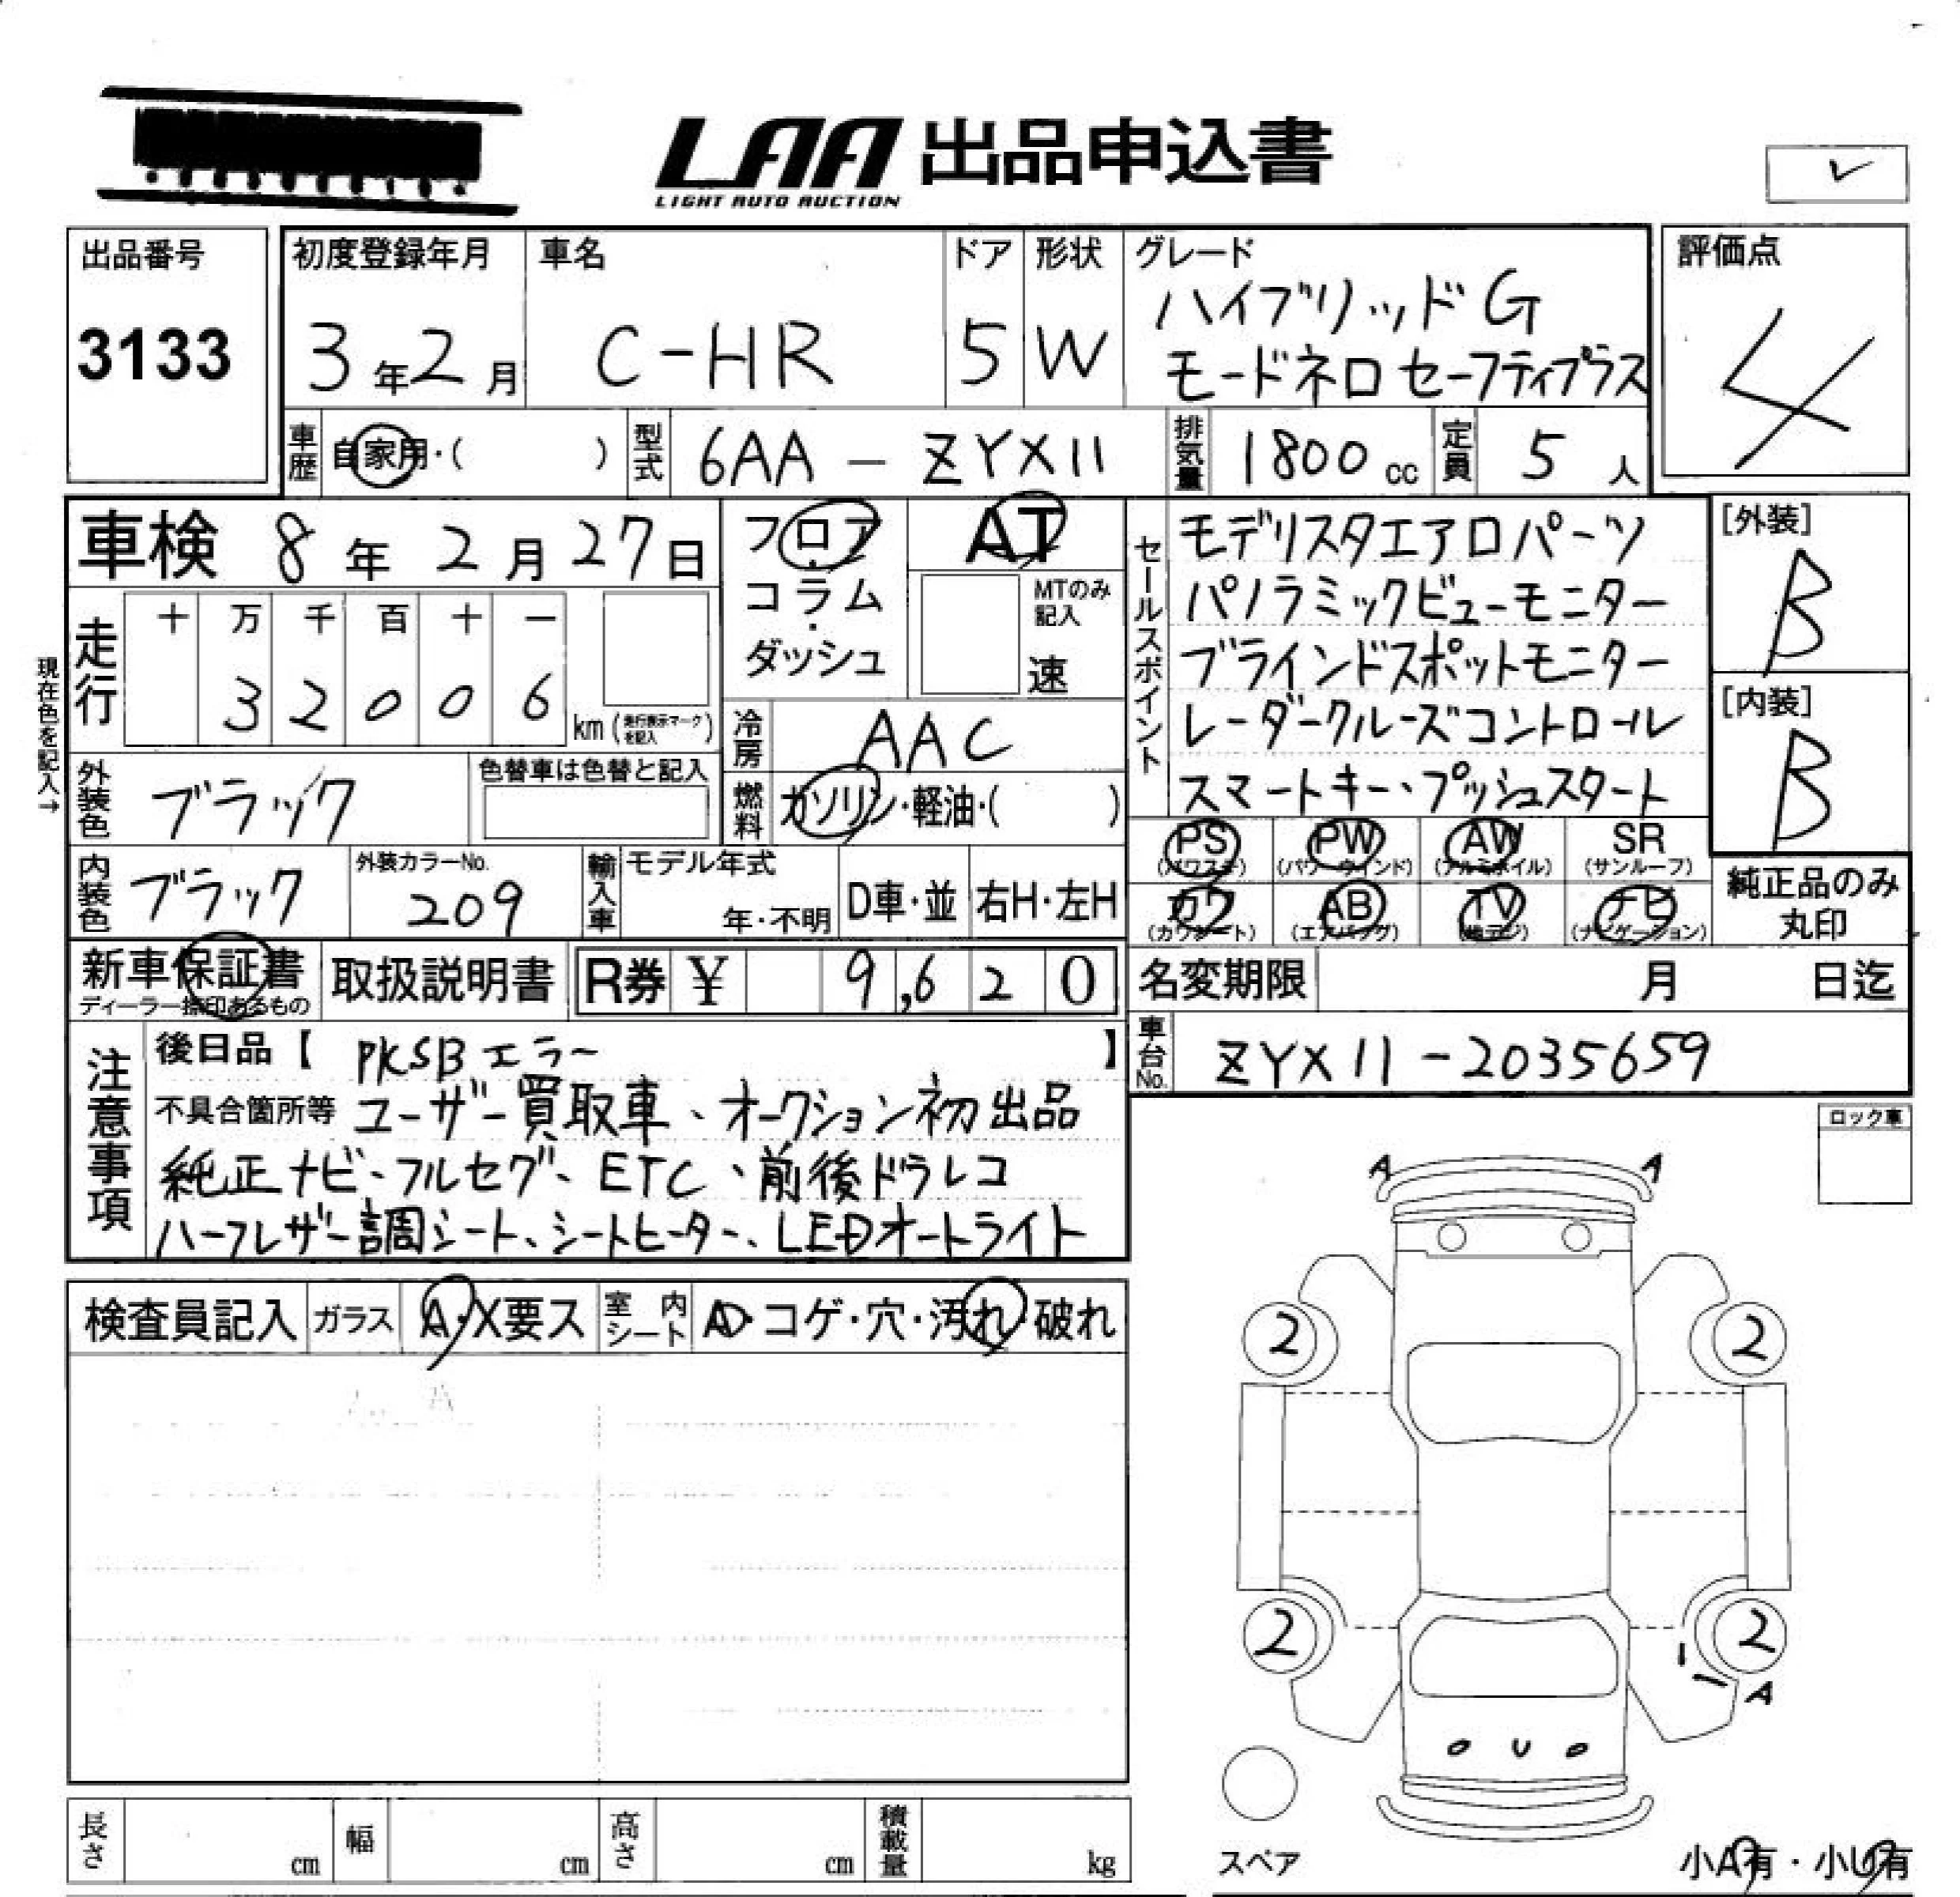 LAA 出品申込書
LIGHT AUTO AUCTION
出品番号
3133
初度登録年月
3年2月
車名
C-HR
ドア
5
形状
W
グレード
ハイブリッドG
モードネロ セーフティプラス
評価点
4
車歴
自家用・( )
型式
6AA - ZYX11
排気量
1800cc
定員
5人
車検 8年2月27日
フロア
・
コラム
・
ダッシュ
AT
MTのみ
記入
速
セールスポイント
モデリスタエアロパーツ
パノラミックビューモニター
ブラインドスポットモニター
レーダークルーズコントロール
スマートキー、プッシュスタート
[外装]
B
[内装]
B
現在色を記入→
走行
十 万 千 百 十 一
3 2 0 0 6
km(走行表示マークを記入)
冷房
AAC
外装色
ブラック
色替車は色替と記入
燃料
ガソリン・軽油・( )
PS
(パワステ)
PW
(パワーウインド)
AW
(アルミホイル)
SR
(サンルーフ)
内装色
ブラック
外装カラーNo.
209
輸入車
モデル年式
年・不明
D車・並
右H・左H
カワ
(カワシート)
AB
(エアバッグ)
TV
(地デジ)
ナビ
(ナビゲーション)
純正品のみ
丸印
新車保証書
ディーラー捺印あるもの
取扱説明書
R券 ¥ 9,620
名変期限 月 日迄
注意事項
後日品【 PKSBエラー 】
不具合箇所等 ユーザー買取車、オークション初出品
純正ナビ、フルセグ、ETC、前後ドラレコ
ハーフレザー調シート、シートヒーター、LEDオートライト
車台No.
ZYX11-2035659
ロック車
A A
検査員記入
ガラス
A・X要ス
室内シート
AD・コゲ・穴・汚れ・破れ
2 2
2 2
A
U
スペア
長さ cm
幅 cm
高さ cm
積載量 kg
小A有・小U有